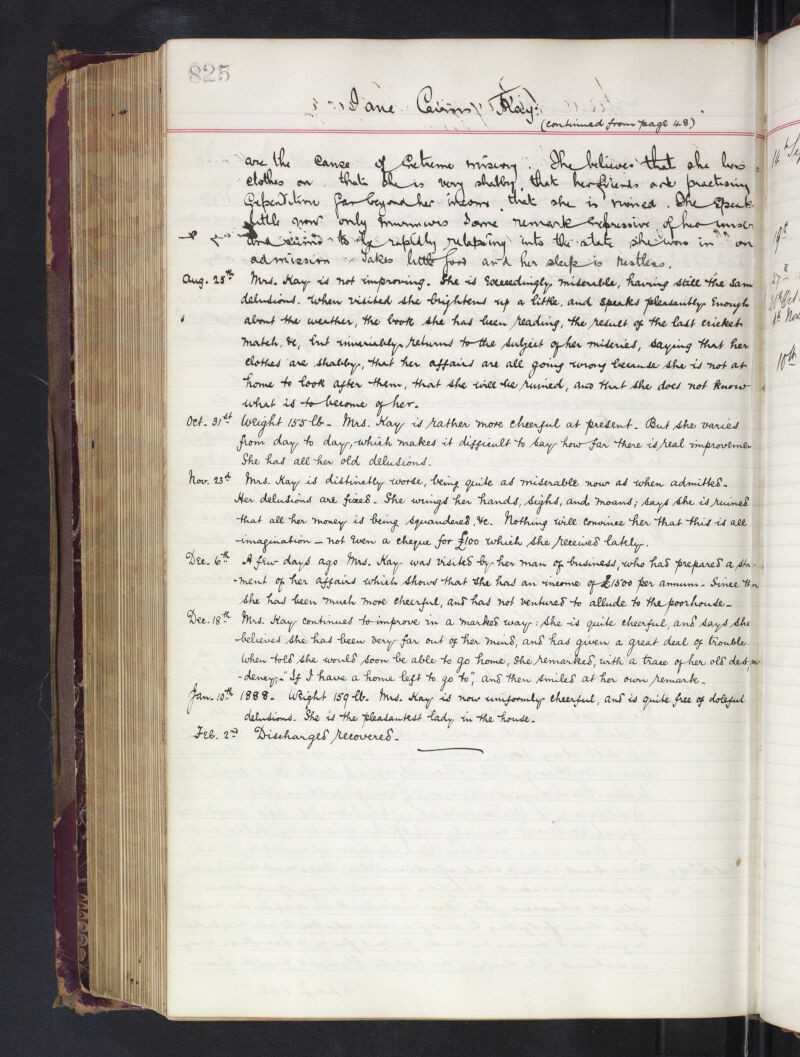 825
Jane Cairns Kay.
(continued from page 48)
are the cause of Extreme misery. She believes that she has
clothes on that she is very shabby, that her friends are practising
Expenditure far beyond her income, that she is ruined. She Speak
little now only murmurs Some remark expressive of her
and seems to be rapidly relapsing into the state she was in on
admission. Takes little food and her sleep is restless.
Aug. 25th Mrs. Kay is not improving. She is Exceedingly miserable, having still the sam
delusions. When visited she brightens up a little, and speaks pleasantly Enough
about the weather, the book she has been reading, the result of the last cricket
match, &c, but invariably returns to the subject of her miseries, saying that her
clothes are shabby, that her affairs are all going wrong because she is not at
home to look after them, that she will be ruined, and that she does not know
what is to become of her.
Oct. 31st Weight 155 lb. Mrs. Kay is rather more cheerful at present. But she varies
from day to day, which makes it difficult to say how far there is real improvemen
She has all her old delusions.
Nov. 23d Mrs. Kay is distinctly worse, being quite as miserable now as when admitted.
Her delusions are fixed. She wrings her hands, sighs, and moans; says she is ruined
that all her money is being squandered, &c. Nothing will convince her that this is all
imagination – not Even a cheque for £100 which she received lately.
Dec. 6th A few days ago Mrs. Kay was visited by her man of business, who had prepared a sta-
-ment of her affairs which shows that she has an income of £1500 per annum. Since th
she has been much more cheerful, and has not ventured to allude to the poorhouse.
Dec. 18th Mrs. Kay continues to improve in a marked way: she is quite cheerful, and says she
believes she has been very far out of her mind, and has given a great deal of trouble.
When told she would soon be able to go home, she remarked, with a trace of her old despon
-dency, "If I have a home left to go to", and then smiled at her own remark.
Jan. 10th 1888. Weight 159 lb. Mrs. Kay is now uniformly cheerful, and is quite free of doleful
delusions. She is the pleasantest lady in the house.
Feb. 2d Discharged recovered.
14th Sep
19th
27
Oct
Nov
10th